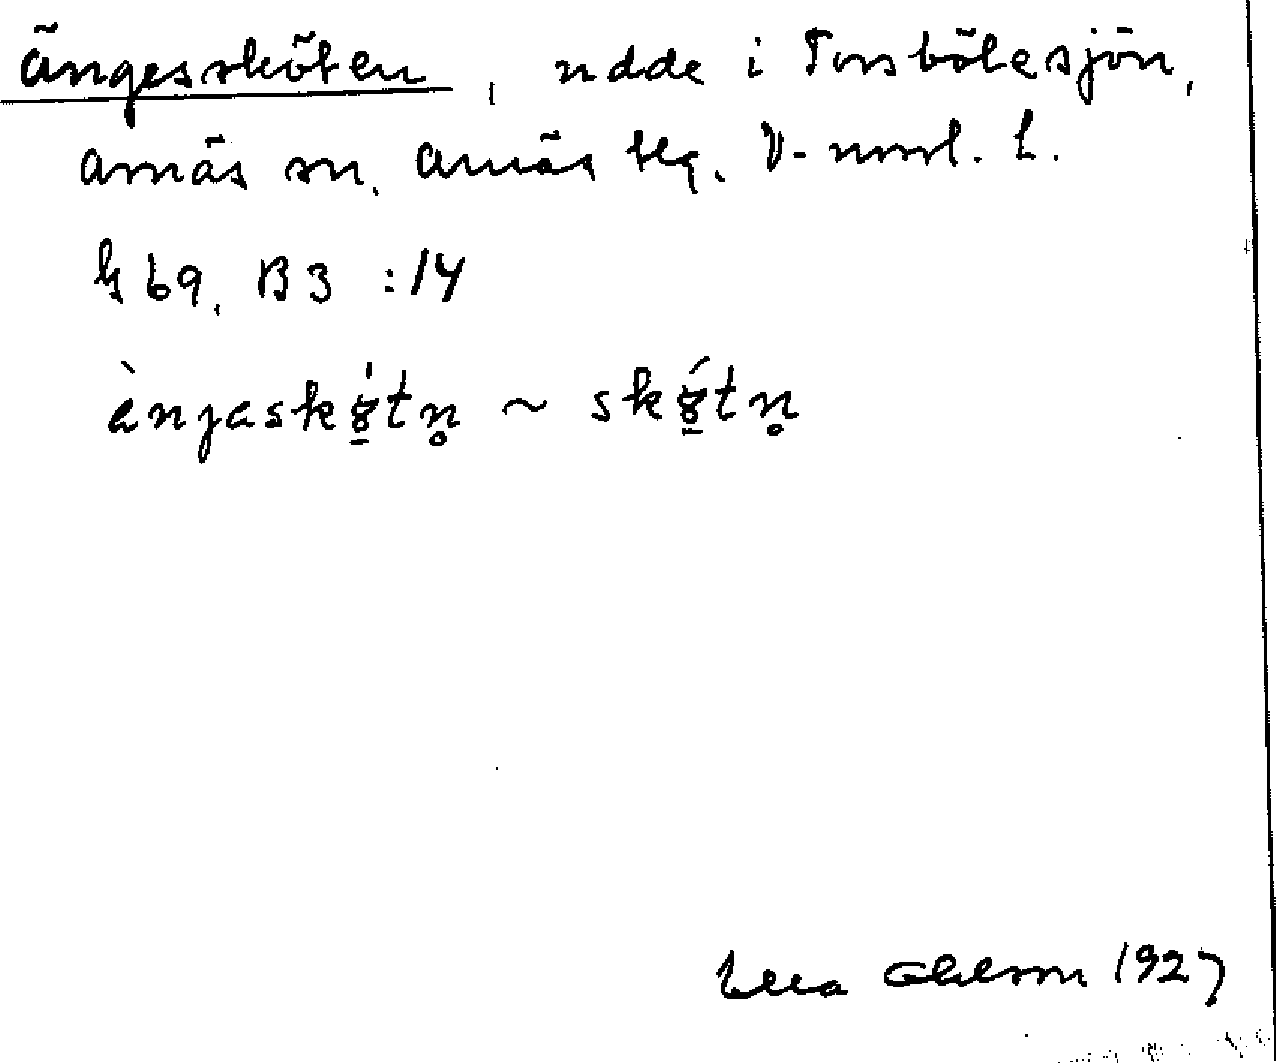 Ängessköten, udde i Torsbölesjön,
Arnäs sn, Arnäs tlg. V-norrl. L.
G 69, B 3 : 14
ànjaskǿ̱tn̥ ~ skǿ̱tn̥
Ohlsson 1927